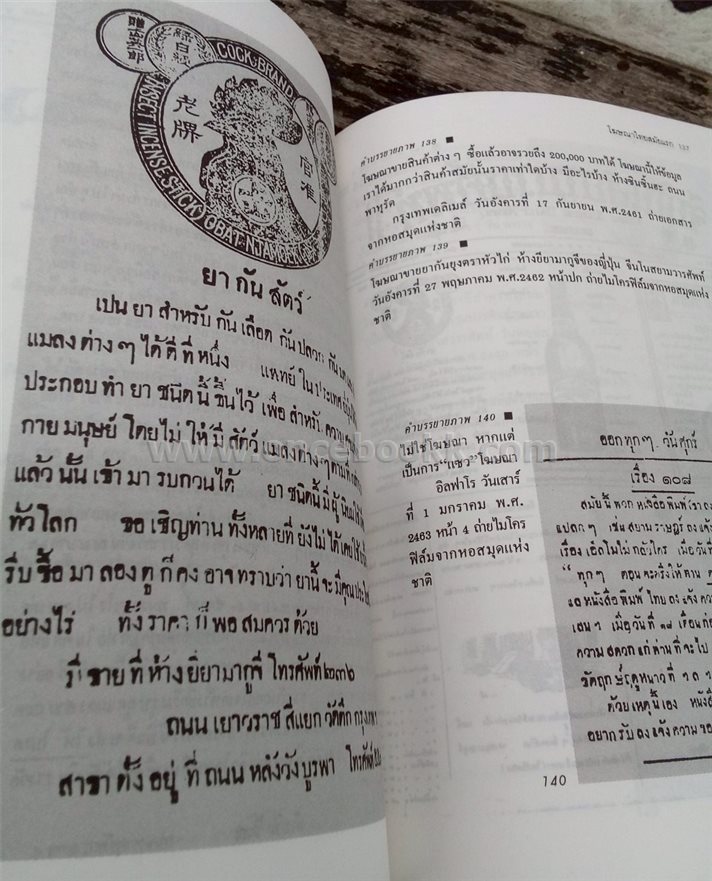 COCK BRAND
INSECT INCENSE STICK OBAT NJAMOEK
老牌
官准
ยา กัน สัตว์
เปน ยา สำหรับ กัน เลือด กัน ปลวก กัน
แมลง ต่าง ๆ ได้ ดี ที่ หนึ่ง แพทย์ ใน ประเทศ
ประกอบ ทำ ยา ชนิด นี้ ขึ้น ไว้ เพื่อ สำหรับ ความ
กาย มนุษย์ โดย ไม่ ให้ มี สัตว์ แมลง ต่าง ๆ ตาม ที่
แล้ว นั้น เข้า มา รบกวน ได้ ยา ชนิด นี้ มี ผู้ นิยม ใช้
ทั่ว โลก ขอ เชิญ ท่าน ทั้ง หลาย ที่ ยัง ไม่ ได้ เคย ใช้
รีบ ซื้อ มา ลอง ดู ก็ คง อาจ ทราบ ว่า ยา นี้ จะ มี คุณ
อย่างไร ทั้ง ราคา ก็ พอ สมควร ด้วย
มี ขาย ที่ ห้าง ยิยามากูจี โทรศัพท์ ๒๓๖
ถนน เยาวราช สี่แยก วัดตึก กรุงเทพ
สาขา ตั้ง อยู่ ที่ ถนน หลังวังบูรพา โทรศัพท์
โฆษณาไทยสมัยแรก 137
คำบรรยายภาพ 138 ■
โฆษณาขายสินค้าต่าง ๆ ซื้อแล้วอาจรวยถึง 200,000 บาทได้ โฆษณานี้ให้ข้อมูล
เราได้มากกว่าสินค้าสมัยนั้นราคาเท่าใดบ้าง มีอะไรบ้าง ห้างซินซิ้นฮะ ถนน
พาหุรัด
กรุงเทพเดลิเมล์ วันอังคารที่ 17 กันยายน พ.ศ.2461 ถ่ายเอกสาร
จากหอสมุดแห่งชาติ
คำบรรยายภาพ 139 ■
โฆษณาขายยากันยุงตราหัวไก่ ห้างยิยามากูจีของญี่ปุ่น จีนในสยามวารศัพท์
วันอังคารที่ 27 พฤษภาคม พ.ศ.2462 หน้าปก ถ่ายไมโครฟิล์มจากหอสมุดแห่ง
ชาติ
คำบรรยายภาพ 140 ■
ไม่ใช่โฆษณา หากแต่
เป็นการ"แซว"โฆษณา
อิลฟาโร วันเสาร์
ที่ 1 มกราคม พ.ศ.
2463 หน้า 4 ถ่ายไมโคร
ฟิล์มจากหอสมุดแห่ง
ชาติ
ออกทุกๆ วันศุกร์
เรื่อง ๑๐๘
สมัยนี้ พวก หนังสือพิมพ์เรา
แปลก ๆ เช่น สยามราษฎร์ ลง แจ้ง
เรื่อง เธอ ไม่ กลัว ใคร เมื่อ วัน ที่
" ทุก ๆ ตอน จะ ครั้ง ให้ ตาม
แล หนังสือพิมพ์ ไทย ลง แจ้ง ความ
เสน ๆ เมื่อ วัน ที่ ๑๘ เรือน ก่อน
ความ สดวก แก่ ท่าน ที่ จะ ไป
ด้วย เหตุ นี้ เอง หนังสือ
อยาก รับ ลง แจ้ง ความ ของ
140